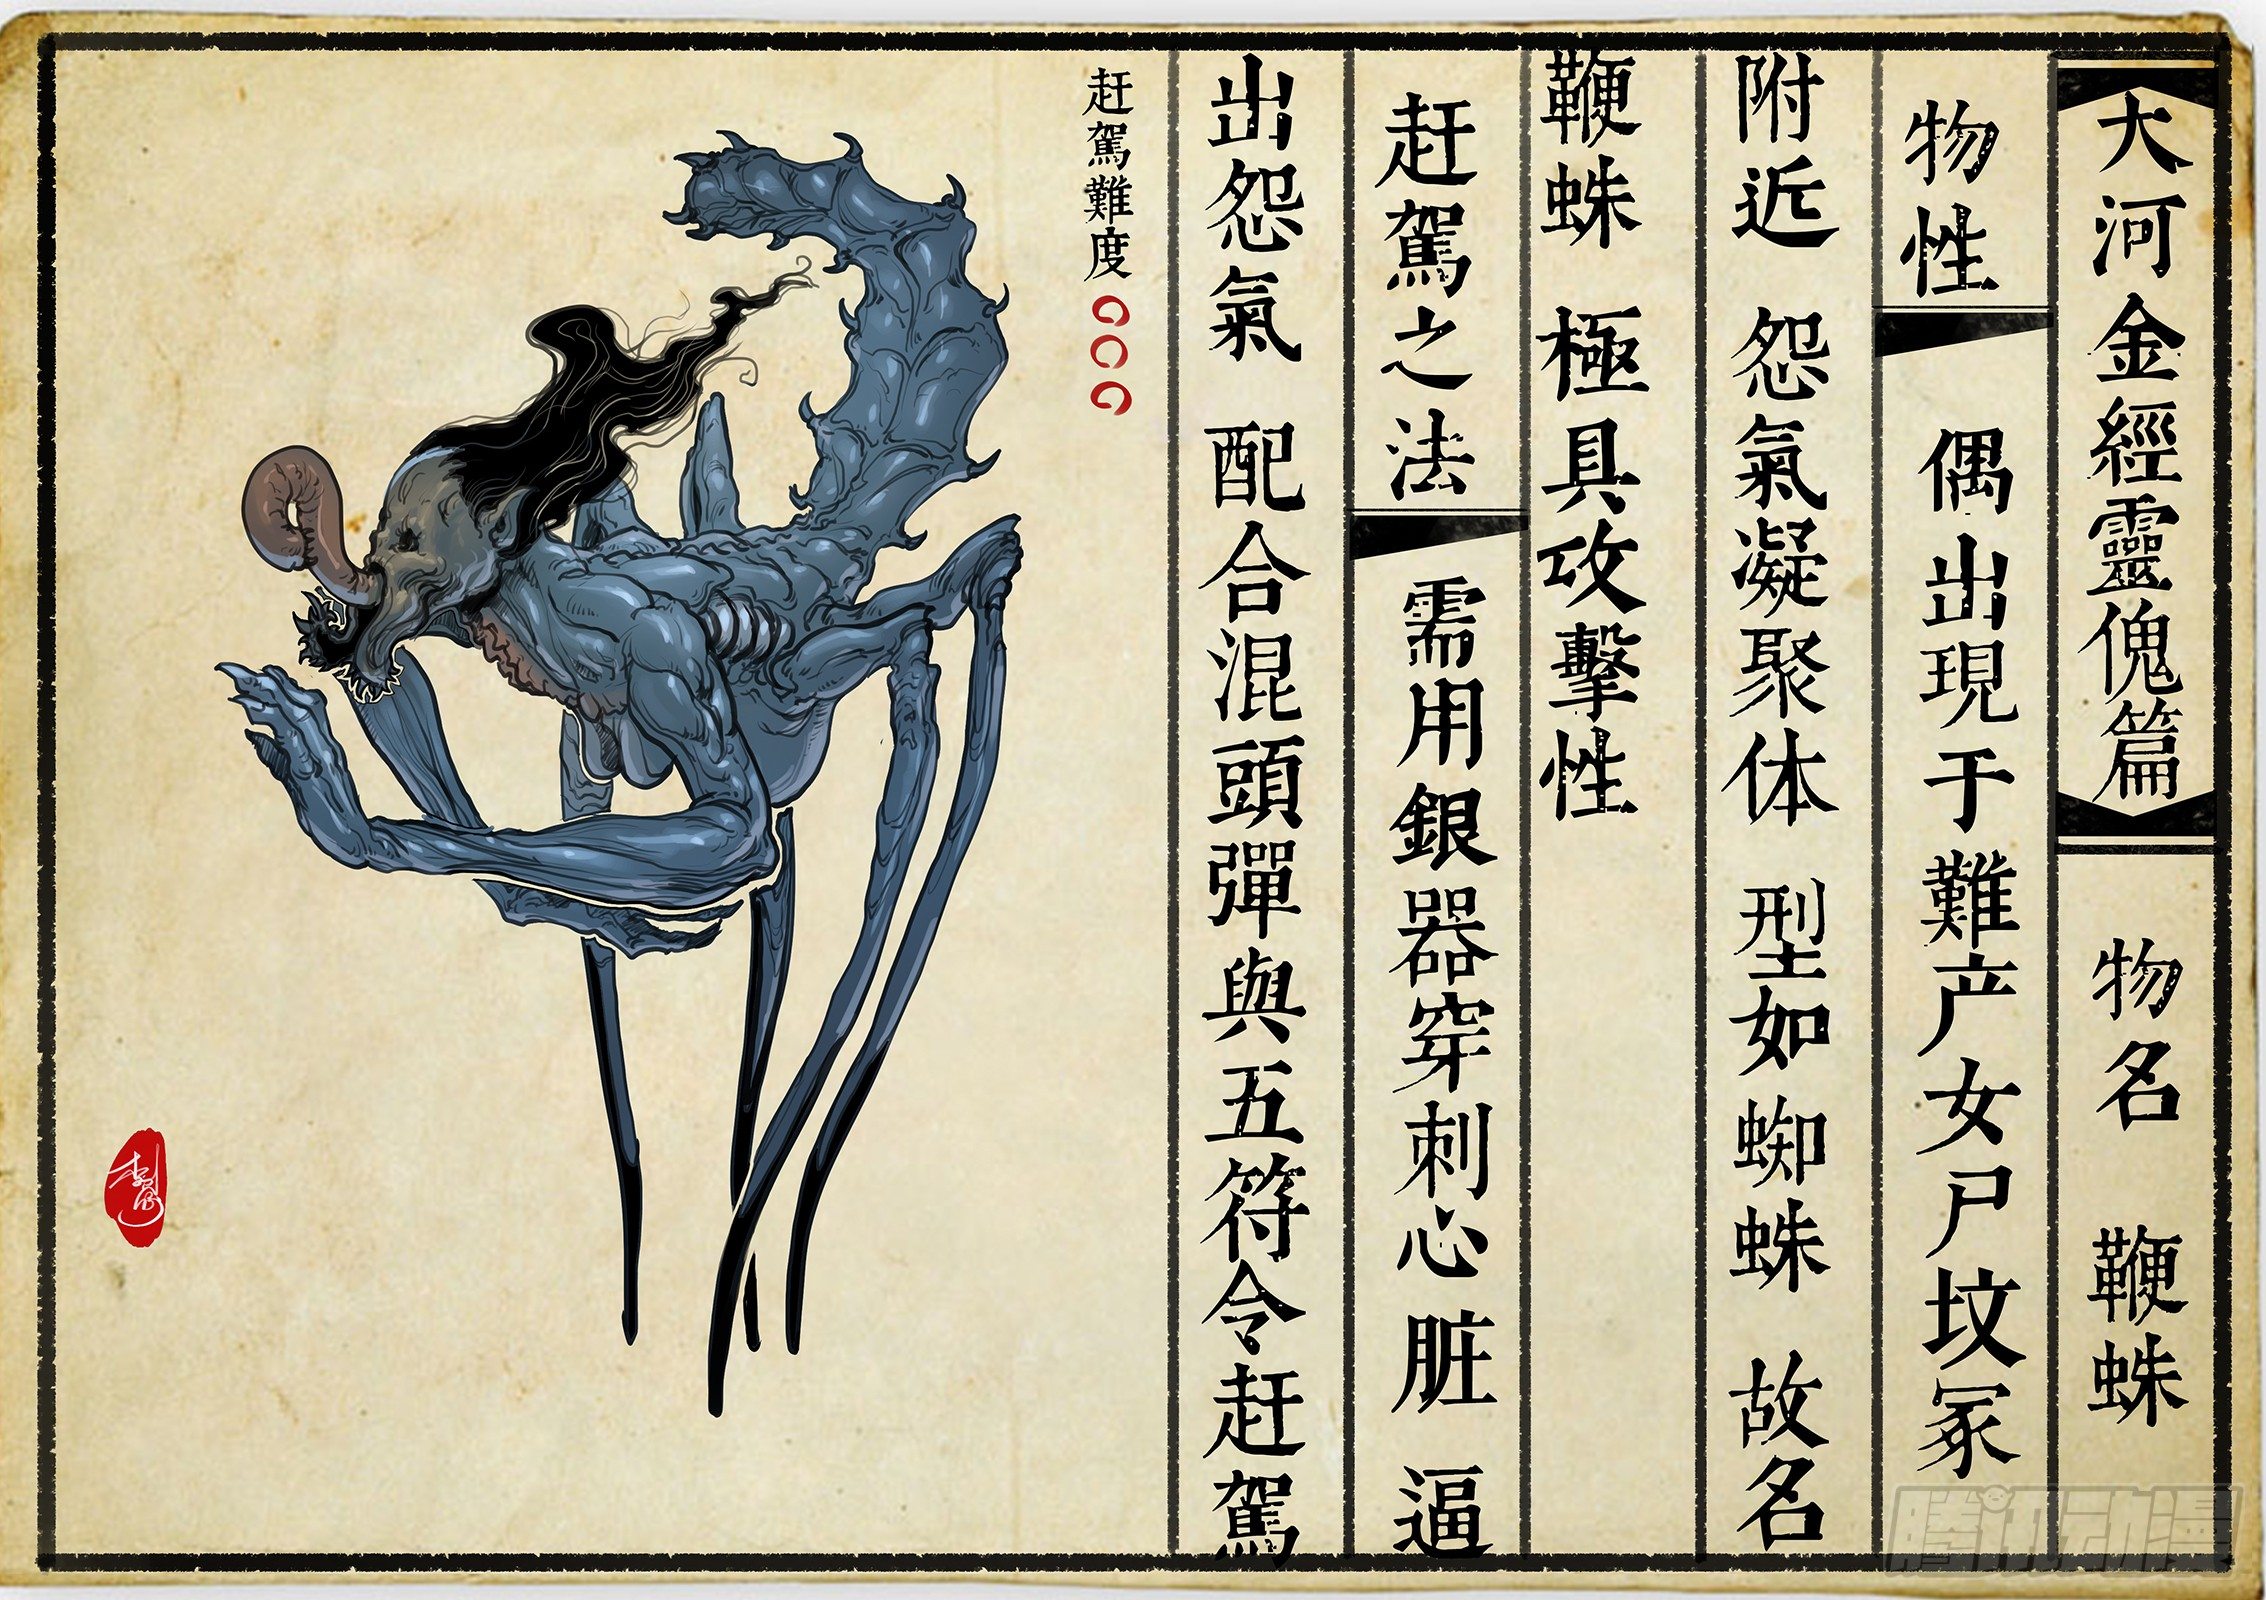 大河金經靈傀篇 物名 鞭蛛
物性 偶出現于難产女尸坟冢
附近 怨氣凝聚体 型如蜘蛛 故名
鞭蛛 極具攻擊性
赶駕之法 需用銀器穿刺心脏 逼
出怨氣 配合混頭彈與五符令赶駕
赶駕難度
腾讯动漫